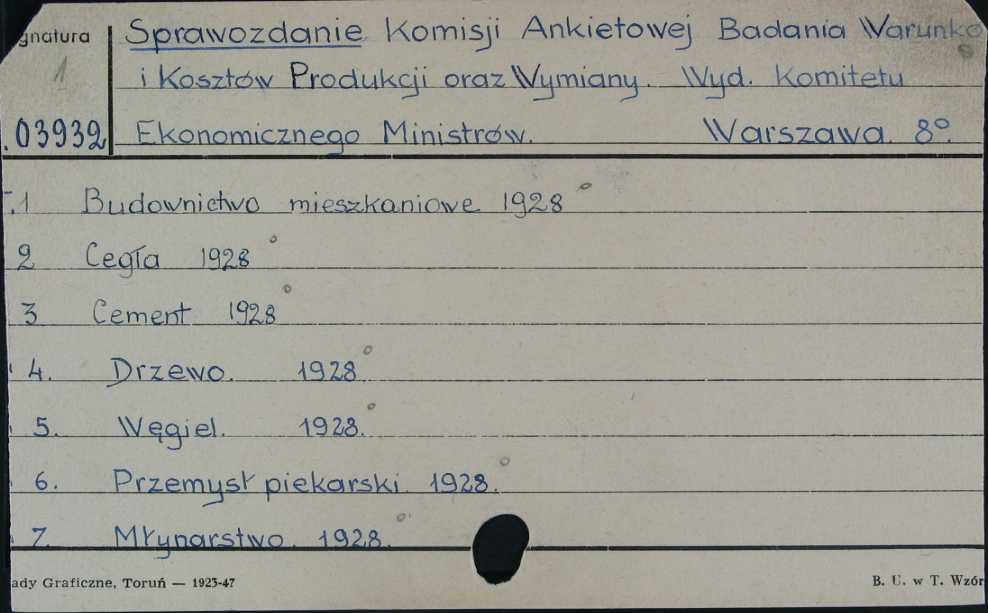 gnatura Sprawozdanie Komisji Ankietowej Badania Warunkó
1 i Kosztów Produkcji oraz Wymiany. Wyd. Komitetu
.03932 Ekonomicznego Ministrów. Warszawa. 8°.
.1 Budownictwo mieszkaniowe 1928
2 Cegła 1928
3 Cement 1928
4. Drzewo. 1928
5. Węgiel. 1928.
6. Przemysł piekarski. 1928.
7. Młynarstwo. 1928.
ady Graficzne, Toruń — 1923-47 B. U. w T. Wzór